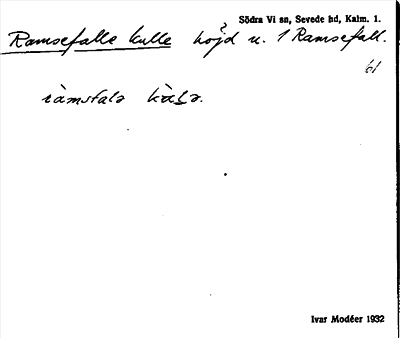 Södra Vi sn, Sevede hd, Kalm. l.
Ramsefalle kulle höjd u. 1 Ramsefall.
61
ràmsfalə
Ivar Modéer 1932